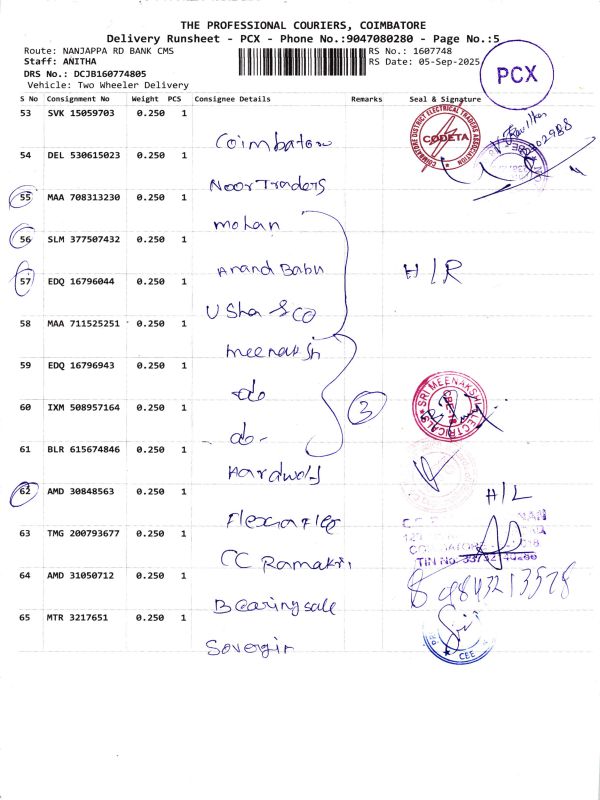 THE PROFESSIONAL COURIERS, COIMBATORE
Delivery Runsheet - PCX - Phone No.:9047080280 - Page No.:5
Route: NANJAPPA RD BANK CMS
RS No.: 1607748
Staff: ANITHA
RS Date: 05-Sep-2025
DRS No.: DCJB160774805
Vehicle: Two Wheeler Delivery
PCX
S No Consignment No Weight PCS Consignee Details Remarks Seal & Signature
53 SVK 15059703 0.250 1
Coimbatore
COIMBATORE DISTRICT ELECTRICAL TRADERS ASSOCIATION
CODETA
54 DEL 530615023 0.250 1
Noor Traders
55 MAA 708313230 0.250 1
mohan
56 SLM 377507432 0.250 1
Anand Babu
H/R
57 EDQ 16796044 0.250 1
Usha & Co
58 MAA 711525251 0.250 1
meenaksh
59 EDQ 16796943 0.250 1
-do
60 IXM 508957164 0.250 1
3
SRI MEENAKSHI ELECTRICALS
-do-
61 BLR 615674846 0.250 1
62 AMD 30848563 0.250 1
H/L
63 TMG 200793677 0.250 1
CC Ramakri
TIN No
64 AMD 31050712 0.250 1
Bearing sale
9843213578
65 MTR 3217651 0.250 1
Sovergin
CEE